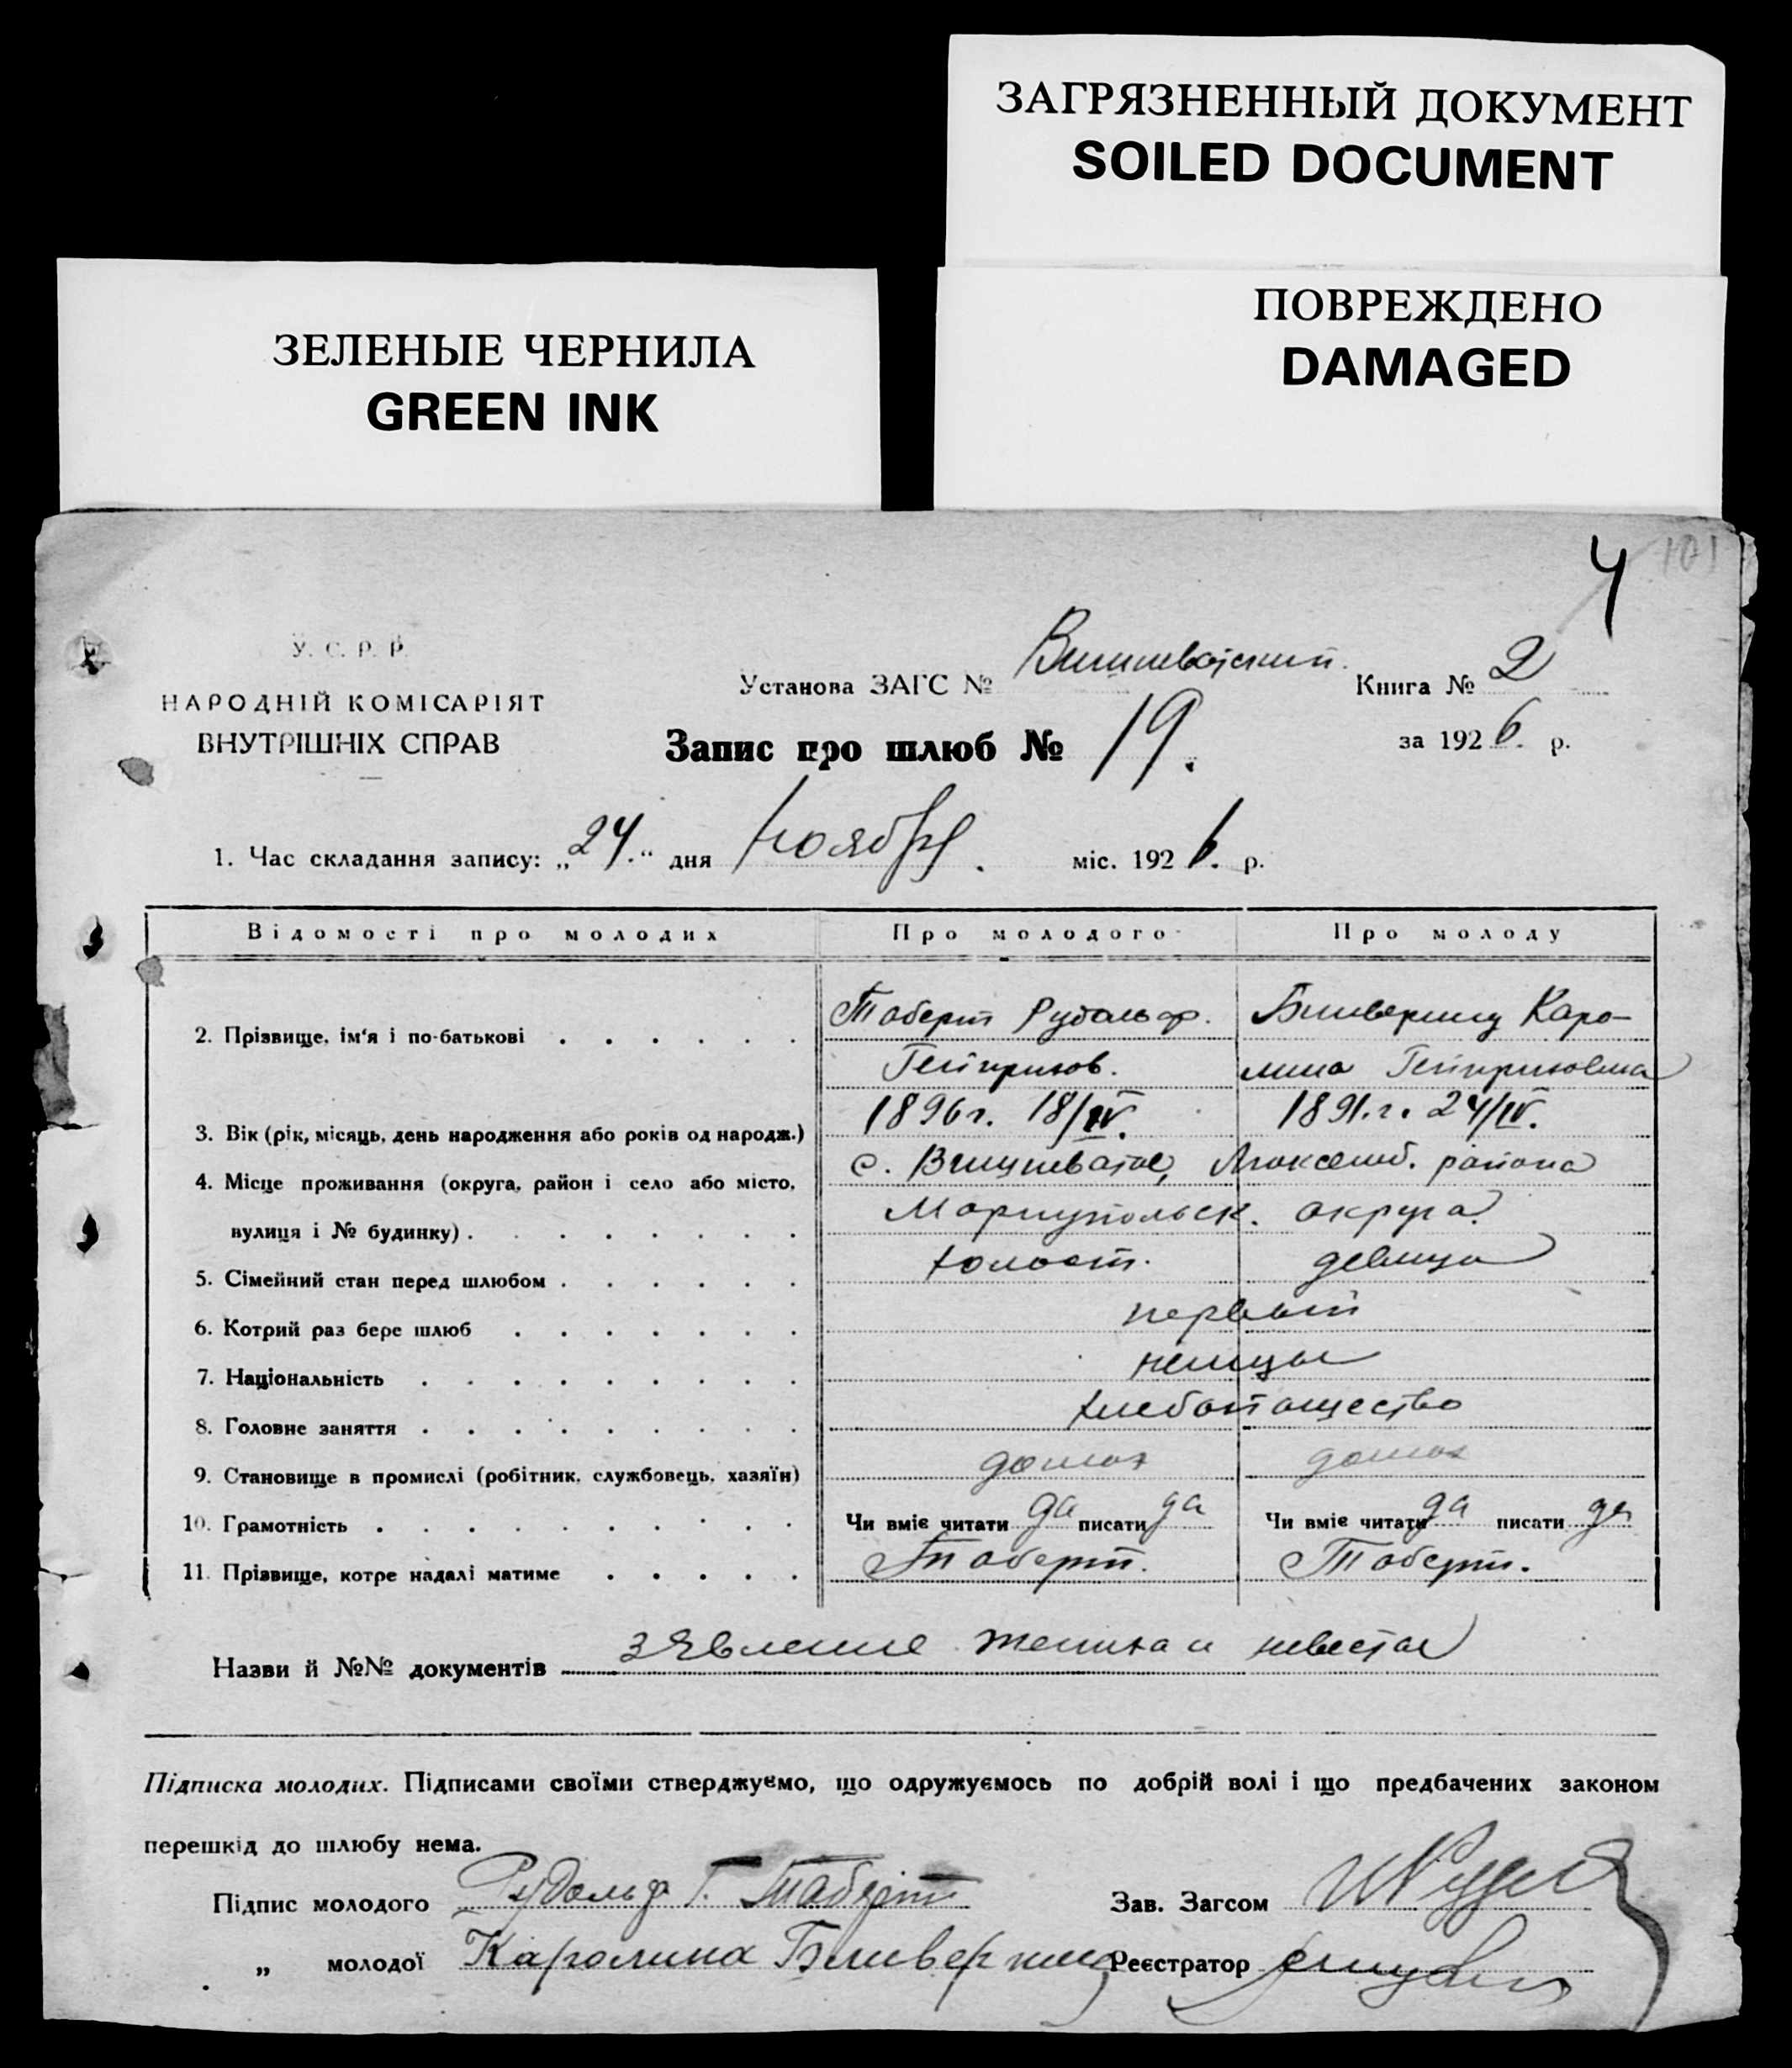 ЗАГРЯЗНЕННЫЙ ДОКУМЕНТ
SOILED DOCUMENT
ЗЕЛЕНЫЕ ЧЕРНИЛА
GREEN INK
ПОВРЕЖДЕНО
DAMAGED
4 101
У. С. Р. Р.
НАРОДНІЙ КОМІСАРІЯТ
ВНУТРІШНІХ СПРАВ
Установа ЗАГС № Книга № 2
Запис про шлюб № 19. за 1926. р.
1. Час складання запису: „24.“ дня Ноября. міс. 1926. р.
Відомості про молодих Про молодого Про молоду
2. Прізвище, ім'я і по-батькові Таберт Рудольф. Каро-
Гейнрихов. лина Гейнриховна
3. Вік (рік, місяць, день народження або років од народж.) 1896 г. 18/IV. 1891. г. 24/IV.
4. Місце проживання (округа, район і село або місто, с. Вишневатое, района
вулиця і № будинку) Мариупольск. округа.
5. Сімейний стан перед шлюбом холост. девица
6. Котрий раз бере шлюб первый
7. Національність немцы
8. Головне заняття хлебопашество
9. Становище в промислі (робітник, службовець, хазяїн) домох домох
10. Грамотність Чи вміє читати да писати да Чи вміє читати да писати да
11. Прізвище, котре надалі матиме Таберт. Таберт.
Назви й №№ документів зявление жениха и невесты
Підписка молодих. Підписами своїми стверджуємо, що одружуємось по добрій волі і що предбачених законом
перешкід до шлюбу нема.
Підпис молодого Рудольф Г. Таберт Зав. Загсом
„ молодої Каролина Реєстратор